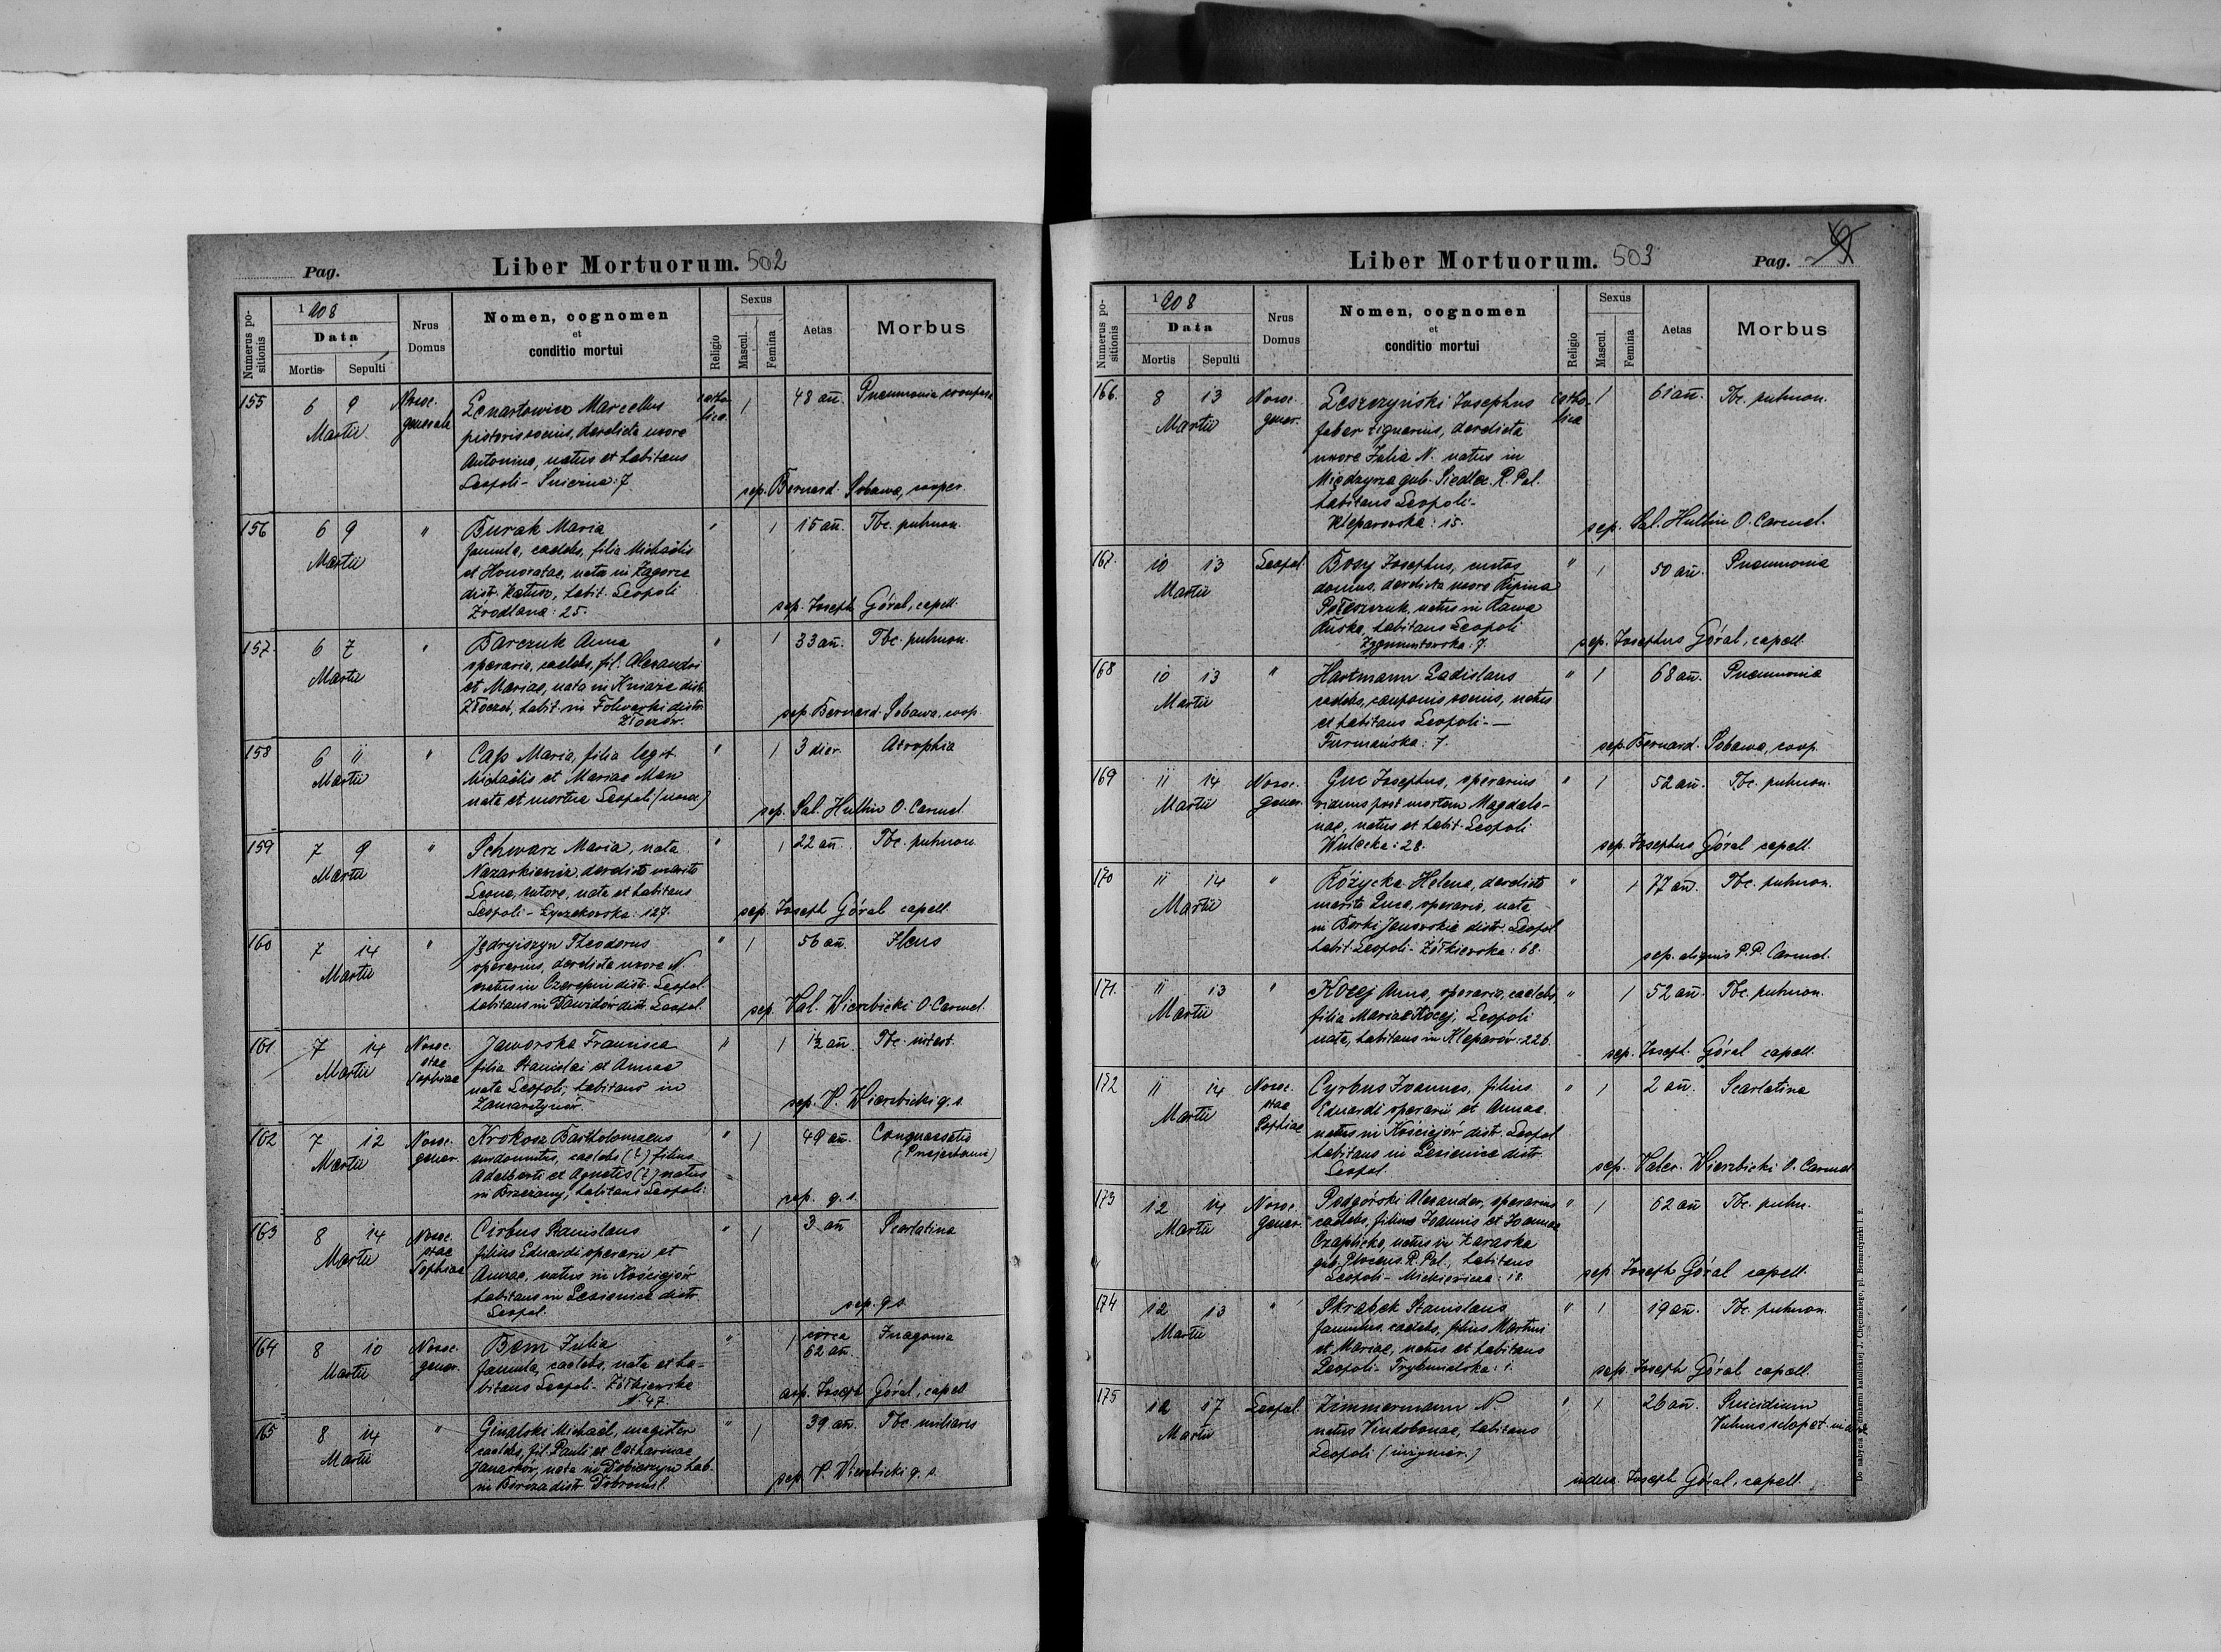 Pag.
Liber Mortuorum. 502
Numerus positionis
1908
Data
Mortis
Sepulti
Nrus Domus
Nomen, cognomen
et
conditio mortui
Religio
Sexus
Mascul.
Femina
Aetas
Morbus
155 6 9 Nosoc. Lenartowicz Marcellus catho- 1 48 añ. Pneumonia
Martii generale pistoris socius, derelicta uxore lica
Antonina, natus et habitans
Leopoli - Śnieżna: 7
sep. Bernard. Sobawa, cooper.
156 6 9 " Burak Maria " 1 15 añ. Tbc. pulmon.
Martii famula, caelebs, filia Michaëlis
et Honoratae, nata in Zagorze
distr. Kałusz, habit. Leopoli
Źrodlana: 25.
sep. Joseph Góral, capell.
157 6 7 " Barczuk Anna " 1 33 añ. Tbc. pulmon.
Martii operaria, caelebs, fil. Alexandri
et Mariae, nata in Kniaże distr.
Złoczów, habit. in Folwarki distr.
Złoczów.
sep. Bernard. Sobawa, coop.
158 6 11 " Cass Maria, filia legit. " 1 3 dier. Atrophia
Martii Michaëlis et Mariae Man
nata et mortua Leopoli
sep. Sal. Huthin O. Carmel.
159 7 9 " Schwarz Maria, nata " 1 22 añ. Tbc. pulmon.
Martii Nazarkiewicz, derelicto marito
Leone, sutore, nata et habitans
Leopoli - Łyczakowska: 127.
sep. Joseph Góral capell.
160 7 14 " Jędryiszyn Theodorus " 1 56 añ. Ileus
Martii operarius, derelicta uxore N.
natus in Czerepin distr. Leopol.
habitans in Dawidów distr. Leopol.
sep. Val. Wierzbicki O. Carmel.
161 7 14 Nosoc. Jaworska Francisca " 1 1½ añ. Tbc. intest.
Martii stae filia Stanislai et Annae
Sophiae nata Leopoli, habitans in
Zamarstynów
sep. V. Wierzbicki q. s.
162 7 12 Nosoc. Krokosz Bartholomaeus " 1 49 añ. Conquassatio
Martii gener. caelebs (?) filius
Adalberti et Agnetis (?) natus
in Brzeżany, habitans Leopoli:
sep. q. s.
163 8 14 Nosoc. Cirbus Stanislaus " 1 3 añ Scarlatina
Martii stae filius Eduardi operarii et
Sophiae Annae, natus in Kościejów
habitans in Lesienice distr.
Leopol.
sep. q. s.
164 8 10 Nosoc. Bem Julia " 1 circa Inagonia
Martii gener. famula, caelebs, nata et ha- 62 añ.
bitans Leopoli - Żółkiewska
N. 47.
sep. Joseph Góral, capell.
165 8 14 " Ginalski Michaël, magister " 1 39 añ. Tbc. miliaris
Martii caelebs, fil. Pauli et Catharinae
nata in Dobieszyn hab.
in distr. Dobromil.
sep. V. Wierzbicki q. s.
Liber Mortuorum. 503
Pag.
Numerus positionis
1908
Data
Mortis
Sepulti
Nrus Domus
Nomen, cognomen
et
conditio mortui
Religio
Sexus
Mascul.
Femina
Aetas
Morbus
166. 8 13 Nosoc. Leszczyński Josephus catho- 1 61 añ. Tbc. pulmon.
Martii gener. faber lignarius, derelicta lica
uxore Julia N. natus in
Międzyrza gub. Siedlce R. Pol.
habitans Leopoli -
Kleparowska: 15.
sep. Sal. Huthin O. Carmel.
167. 10 13 Leopol. Bosy Josephus, custos " 1 50 añ. Pneumonia
Martii domus, derelicta uxore
natus in Rawa
Ruska, habitans Leopoli
Zygmuntowska: 7.
sep. Josephus Góral, capell.
168 10 13 " Hartmann Ladislaus " 1 68 añ. Pneumonia
Martii caelebs, cauponis socius, natus
et habitans Leopoli -
Furmańska: 7.
sep. Bernard. Sobawa, coop.
169 11 14 Nosoc. Guc Josephus, operarius " 1 52 añ. Tbc. pulmon.
Martii gener. viduus post mortem Magdale-
nae, natus et habit. Leopoli
Wulecka: 28.
sep. Josephus Góral capell.
170 11 14 " Różycka Helena, derelicto " 1 77 añ. Tbc. pulmon.
Martii marito Luca, operario, nata
in Borki Janowskie distr. Leopol
habit. Leopoli - Żółkiewska: 68.
sep. aliquis P.P. Carmel.
171. 11 13 " Kocej Anna, operaria, caelebs, " 1 52 añ. Tbc. pulmon.
Martii filia Mariae Kocej, Leopoli
nata, habitans in Kleparów: 226.
sep. Joseph. Góral capell.
172 11 14 Nosoc. Cyrbus Joannes, filius " 1 2 añ. Scarlatina
Martii stae Eduardi operarii et Annae
Sophiae natus in Kościejów distr. Leopol
habitans in Lesienice distr.
Leopol.
sep. Valer. Wierzbicki O. Carmel.
173 12 14 Nosoc. Podgórski Alexander, operarius " 1 62 añ Tbc. pulm.
Martii gener. caelebs, filius Joannis et Joannae
Czaplicka, natus in Żaraska
gub. Plocens. R. Pol., habitans
Leopoli - Mickiewicza: 18.
sep. Joseph Góral capell.
174 12 13 " Skrabek Stanislaus " 1 19 añ. Tbc. pulmon.
Martii famulus, caelebs, filius Martini
et Mariae, natus et habitans
Leopoli - Trybunalska: 1.
sep. Joseph Góral capell.
175 12 17 Leopol. Zimmermann N. " 1 26 añ. Suicidium
Martii natus Vindobonae, habitans Vulnus sclopet.
Leopoli
Joseph Góral, capell.
Do nabycia w drukarni katolickiej J. Chęcińskiego, pl. Bernardyński l. 2.